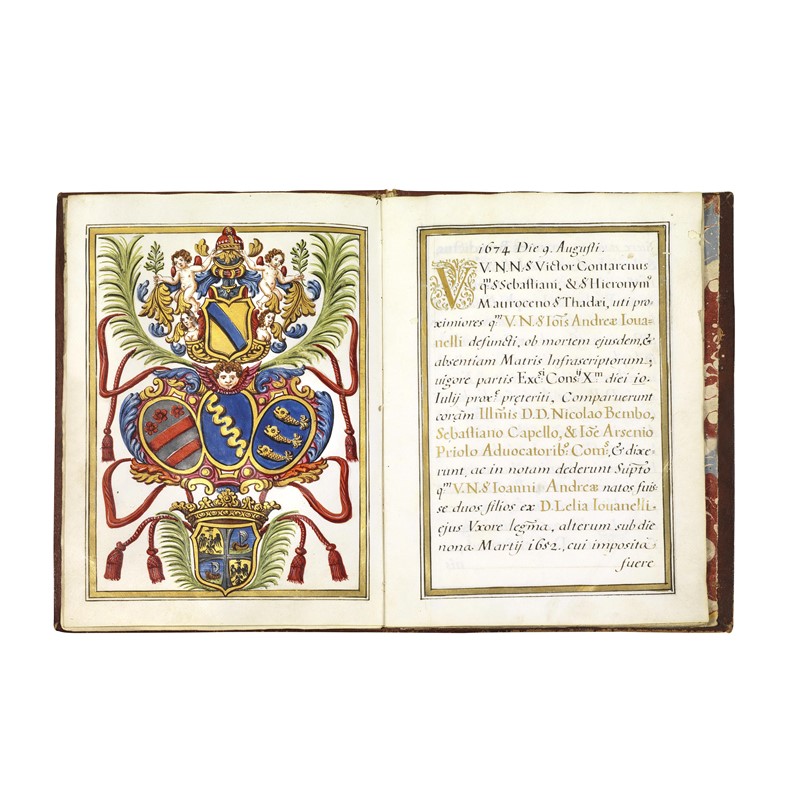 1674 Die 9. Augusti.
V. N. N. S Victor Contarenus
qᵐ S Sebastiani, & S Hieronymˢ
Mauroceno S Thadæi, uti pro-
ximiores qᵐ V. N. S Io͞is Andreæ Ioua-
nelli defuncti, ob mortem ejusdem, &
absentiam Matris Infrascriptorum,
uigore partis Excˢⁱ Consⁱⁱ Xᵐ diei 10.
Iulij proxᵉ præteriti. Comparuerunt
coram Illm̃is D. D. Nicolao Bembo,
Sebastiano Capello, & Ioẽ Arsenio
Priolo Aduocatoribˢ Comˢ, & dixe-
runt, ac in notam dederunt Supᵗᵒ
qᵐ V. N. S Ioanni Andreæ natos fuis-
se duos filios ex D. Lelia Iouanelli
ejus Vxore legm̃a, alterum sub die
nona Martij 1652, cui imposita
fuere